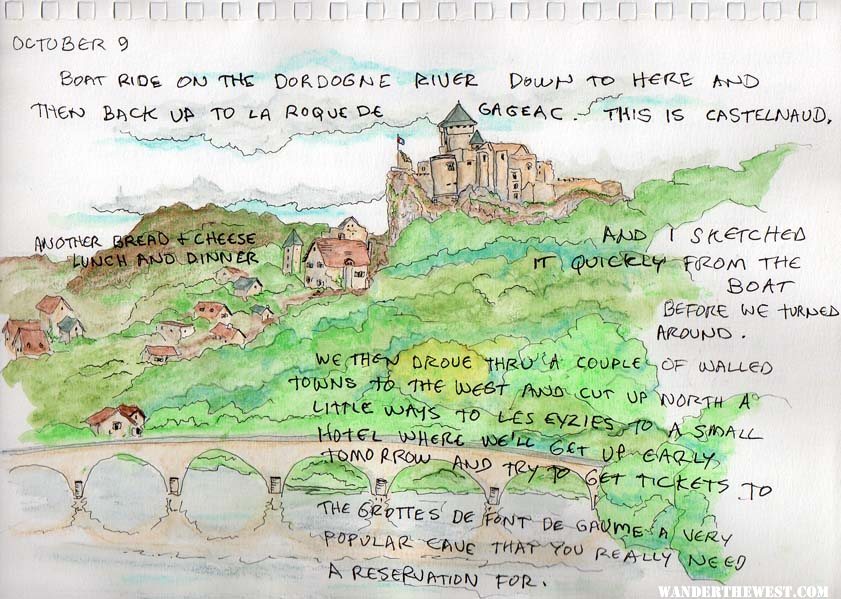 OCTOBER 9
BOAT RIDE ON THE DORDOGNE RIVER DOWN TO HERE AND
THEN BACK UP TO LA ROQUE DE GAGEAC. THIS IS CASTELNAUD,
AND I SKETCHED
IT QUICKLY FROM THE
BOAT
BEFORE WE TURNED
AROUND.
ANOTHER BREAD + CHEESE
LUNCH AND DINNER
WE THEN DROVE THRU A COUPLE OF WALLED
TOWNS TO THE WEST AND CUT UP NORTH A
LITTLE WAYS TO LES EYZIES TO A SMALL
HOTEL WHERE WE'LL GET UP EARLY
TOMORROW AND TRY TO GET TICKETS TO
THE GROTTES DE FONT DE GAUME A VERY
POPULAR CAVE THAT YOU REALLY NEED
A RESERVATION FOR.
WANDERTHEWEST.COM